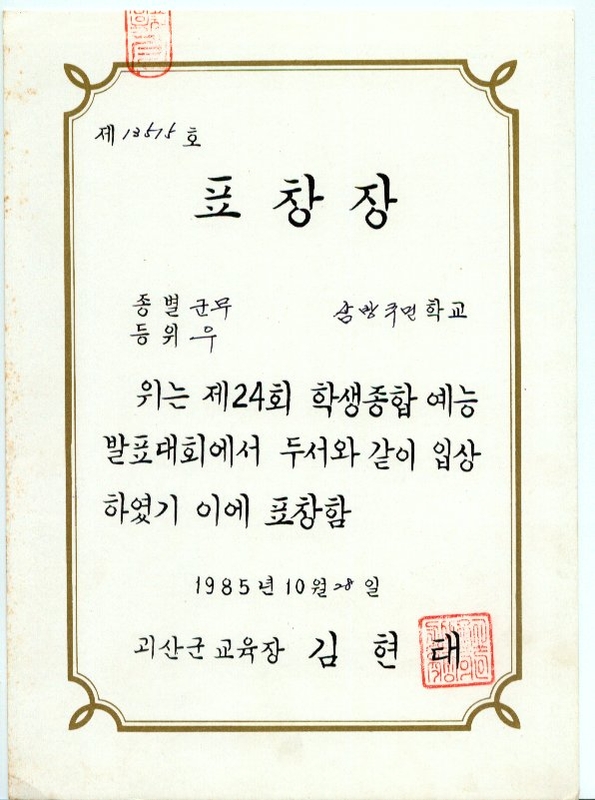 제 13515 호
표창장
종별 군무 삼방국민학교
등위 우
위는 제24회 학생종합 예능
발표대회에서 두서와 같이 입상
하였기 이에 표창함
1985년 10월 28일
괴산군교육장 김현태